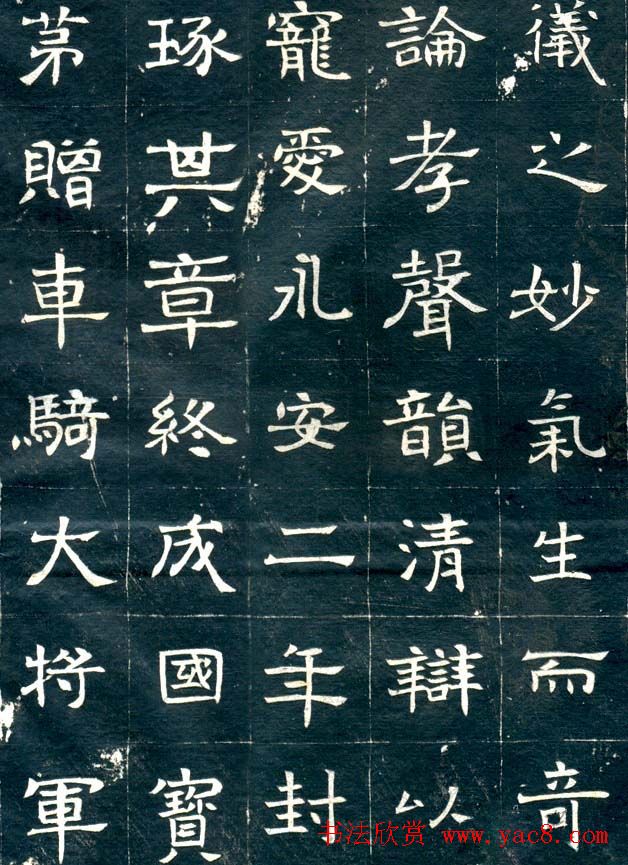 儀之妙氣生而奇
論孝聲韻清辯以
寵愛永安二年封
琢其章終成國寶
苐贈車騎大將軍
书法欣赏 www.yac8.com